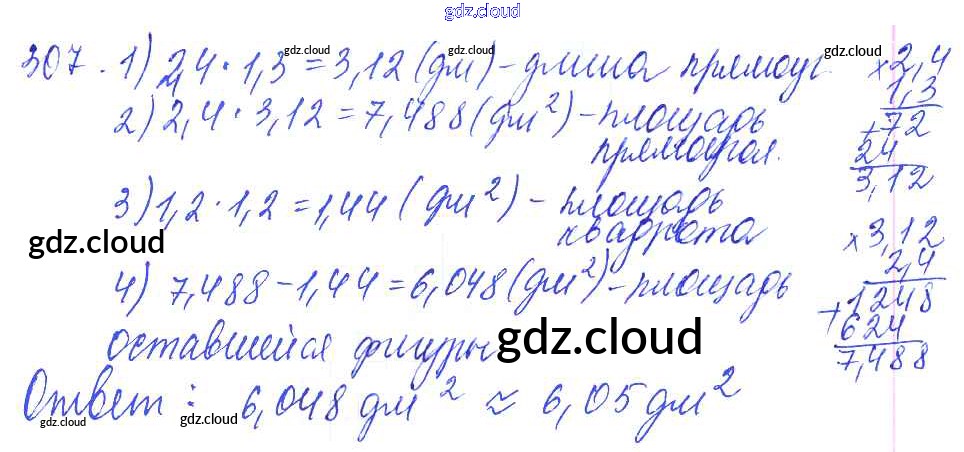 gdz.cloud
307. 1) 2,4 · 1,3 = 3,12 (дм) - длина прямоуг.
gdz.cloud gdz.cloud gdz.cloud
2) 2,4 · 3,12 = 7,488 (дм²) - площадь
прямоугол.
3) 1,2 · 1,2 = 1,44 (дм²) - площадь
квадрата
gdz.cloud
4) 7,488 - 1,44 = 6,048 (дм²) - площадь
оставшейся фигуры
gdz.cloud
Ответ: 6,048 дм² ≈ 6,05 дм²
gdz.cloud gdz.cloud
× 2,4
1,3
+ 72
24
3,12
× 3,12
2,4
+ 1248
624
7,488